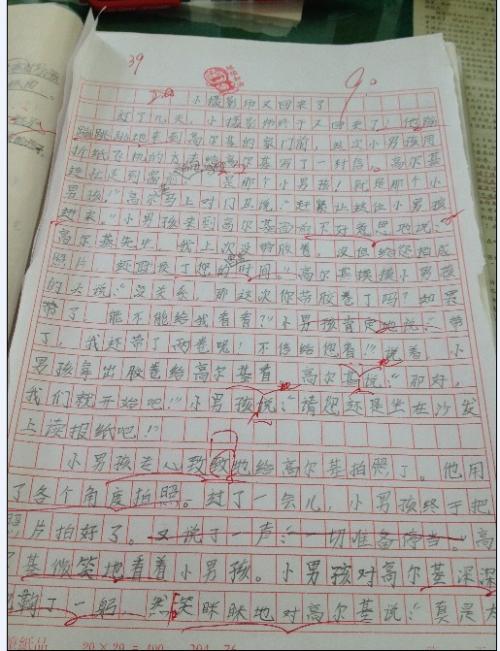 39
90
小摄影师又回来了
过了几天，小摄影师终于又回来了！他蹦
蹦跳跳地来到高尔基的家门前，这次小男孩用
折纸飞机的方式给高尔基写了一封信。高尔基
是那个小男孩！就是那个小
男孩，”高尔基马上对门卫说：“赶紧让这位小男孩
进来。”小男孩来到高尔基面前不好意思地说：
高尔基先生，我上次没带胶卷，没但给您拍成
照片，还耽误了您的时间。”高尔基摸摸小男孩
的头说：“没关系，那这次你带胶卷了吗？如果
带了，能不能给我看看？”小男孩肯定地说：“带
了，我还带了两卷呢！不信给您看！”说着，小
男孩拿出胶卷给高尔基看，高尔基说：“那好，
我们就开始吧！”小男孩说：“请您还是坐在沙发
上读报纸吧！”
小男孩专心致致地给高尔基拍照了。他用
了各个角度拍照。过了一会儿，小男孩终于把
照片拍好了。又说了一声：“一切准备停当。”高
尔基微笑地看着小男孩。小男孩对高尔基深深
地鞠了一躬，然笑眯眯地对高尔基说：“真是大
20×20=400